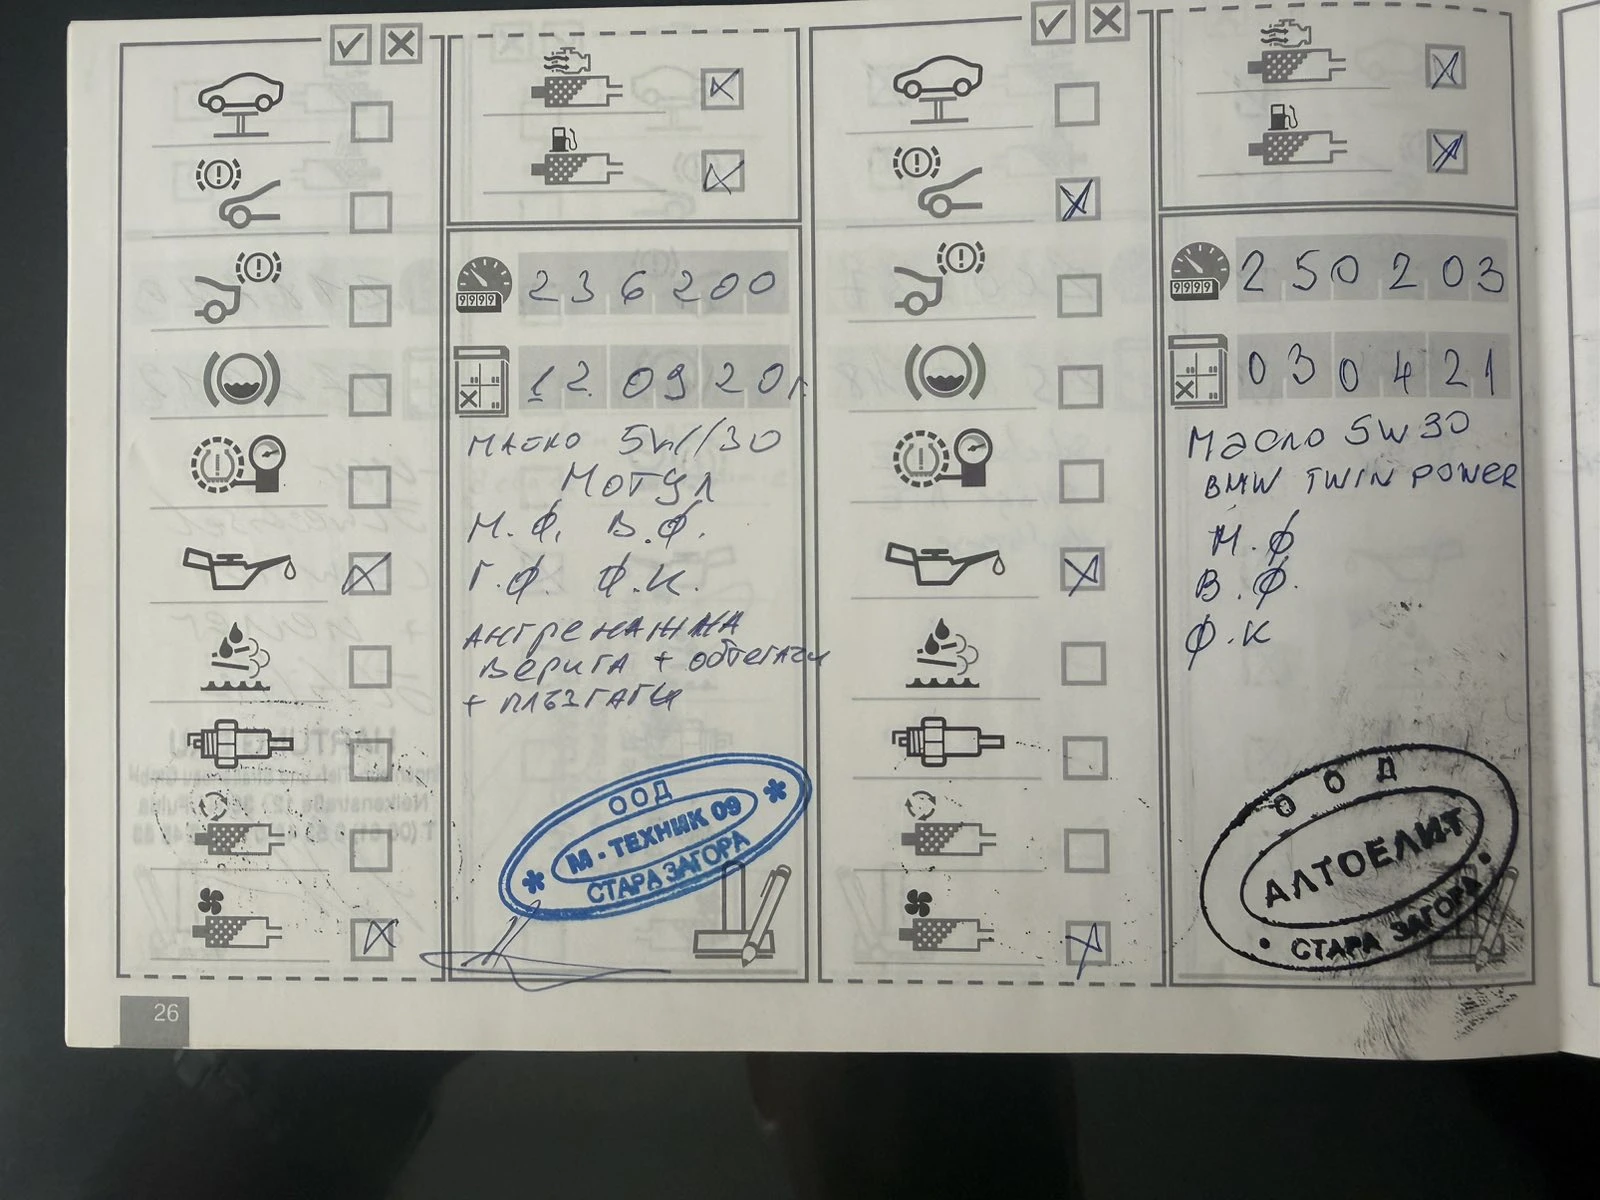 236200
12.09 20г.
масло 5w//30
Мотул
М.Ф. В.Ф.
Г.Ф. Ф.К.
Ангренажна
верига + обтегачи
+ плъзгачи
ООД
* М - ТЕХНИК 09 *
СТАРА ЗАГОРА
250203
030421
Масло 5w30
BMW TWIN POWER
М.Ф
В.Ф.
Ф.К
ООД
АЛТОЕЛИТ
• СТАРА ЗАГОРА •
9999
9999
26